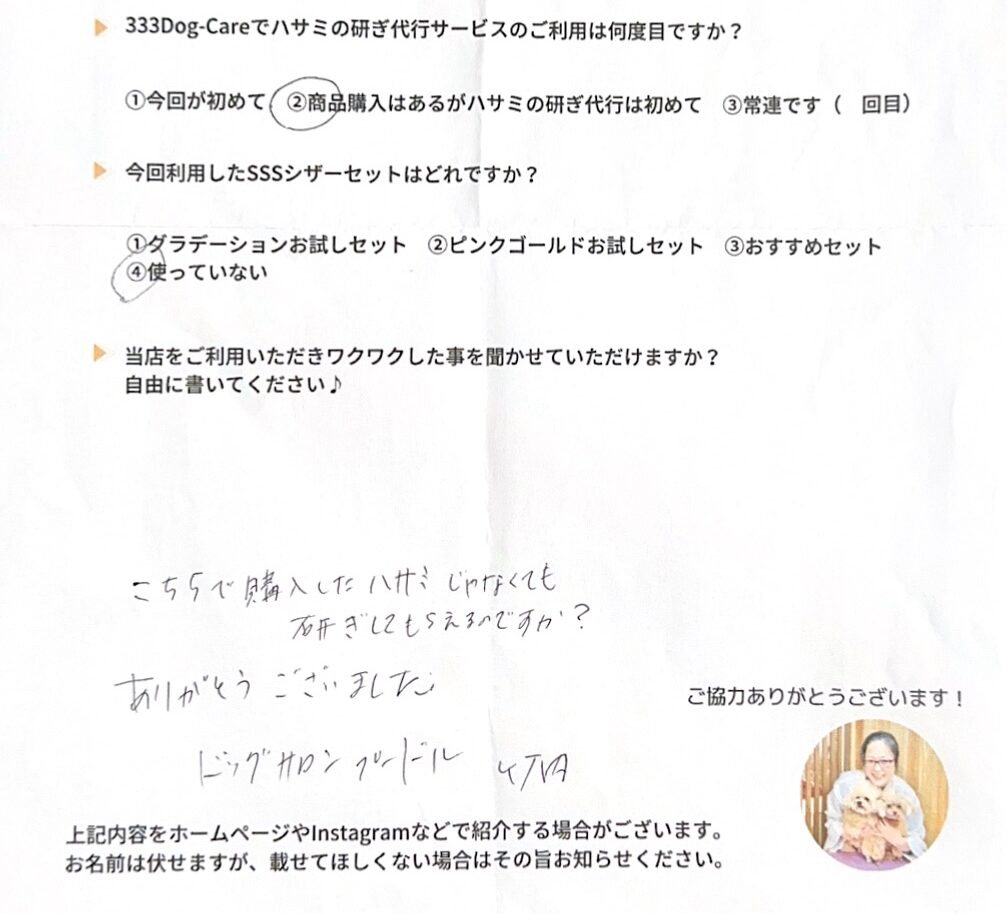 333Dog-Careでハサミの研ぎ代行サービスのご利用は何度目ですか？
①今回が初めて　②商品購入はあるがハサミの研ぎ代行は初めて　③常連です（　回目）
今回利用したSSSシザーセットはどれですか？
①ダラデーションお試しセット　②ピンクゴールドお試しセット　③おすすめセット
④使っていない
当店をご利用いただきワクワクした事を聞かせていただけますか？
自由に書いてください♪
こちらで購入したハサミじゃなくても
研ぎしてもらえるのですか？
ありがとうございました
ご協力ありがとうございます！
ドッグサロンプードル
上記内容をホームページやInstagramなどで紹介する場合がございます。
お名前は伏せますが、載せてほしくない場合はその旨お知らせください。